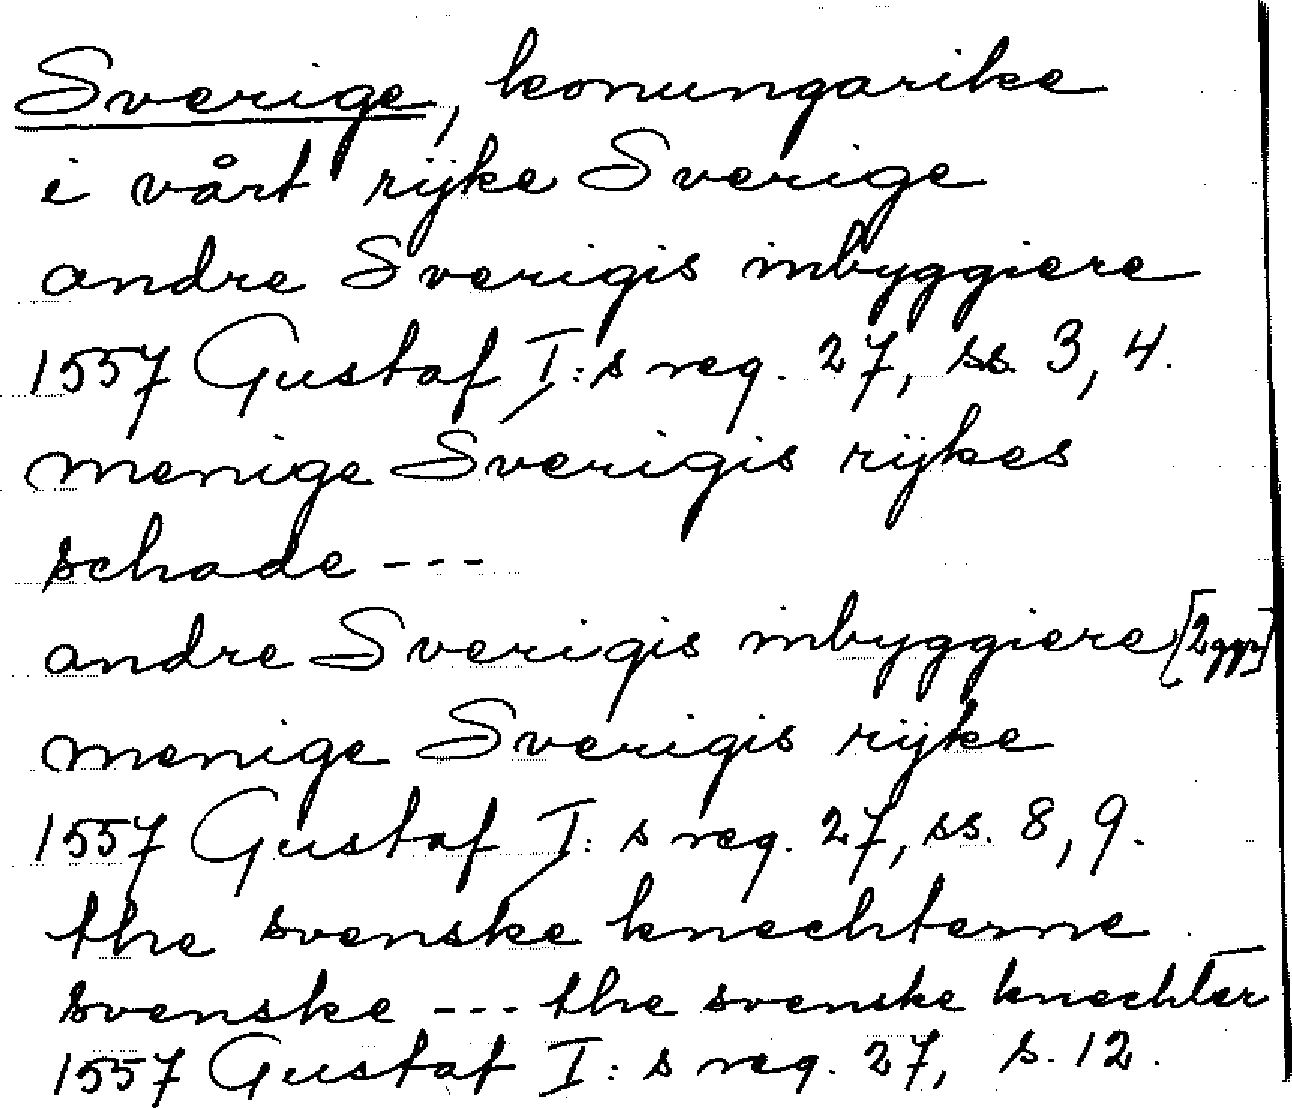 Sverige, konungarike
i vårt rijke Sverige
andre Sverigis inbyggiere
1557 Gustaf I:s reg. 27, ss. 3, 4.
menige Sverigis rijkes
schade ---
andre Sverigis inbyggiere [2ggr]
menige Sverigis rijke
1557 Gustaf I:s reg. 27, ss. 8, 9.
the svenske knechterne
svenske --- the svenske knechter
1557 Gustaf I:s reg. 27, s. 12.